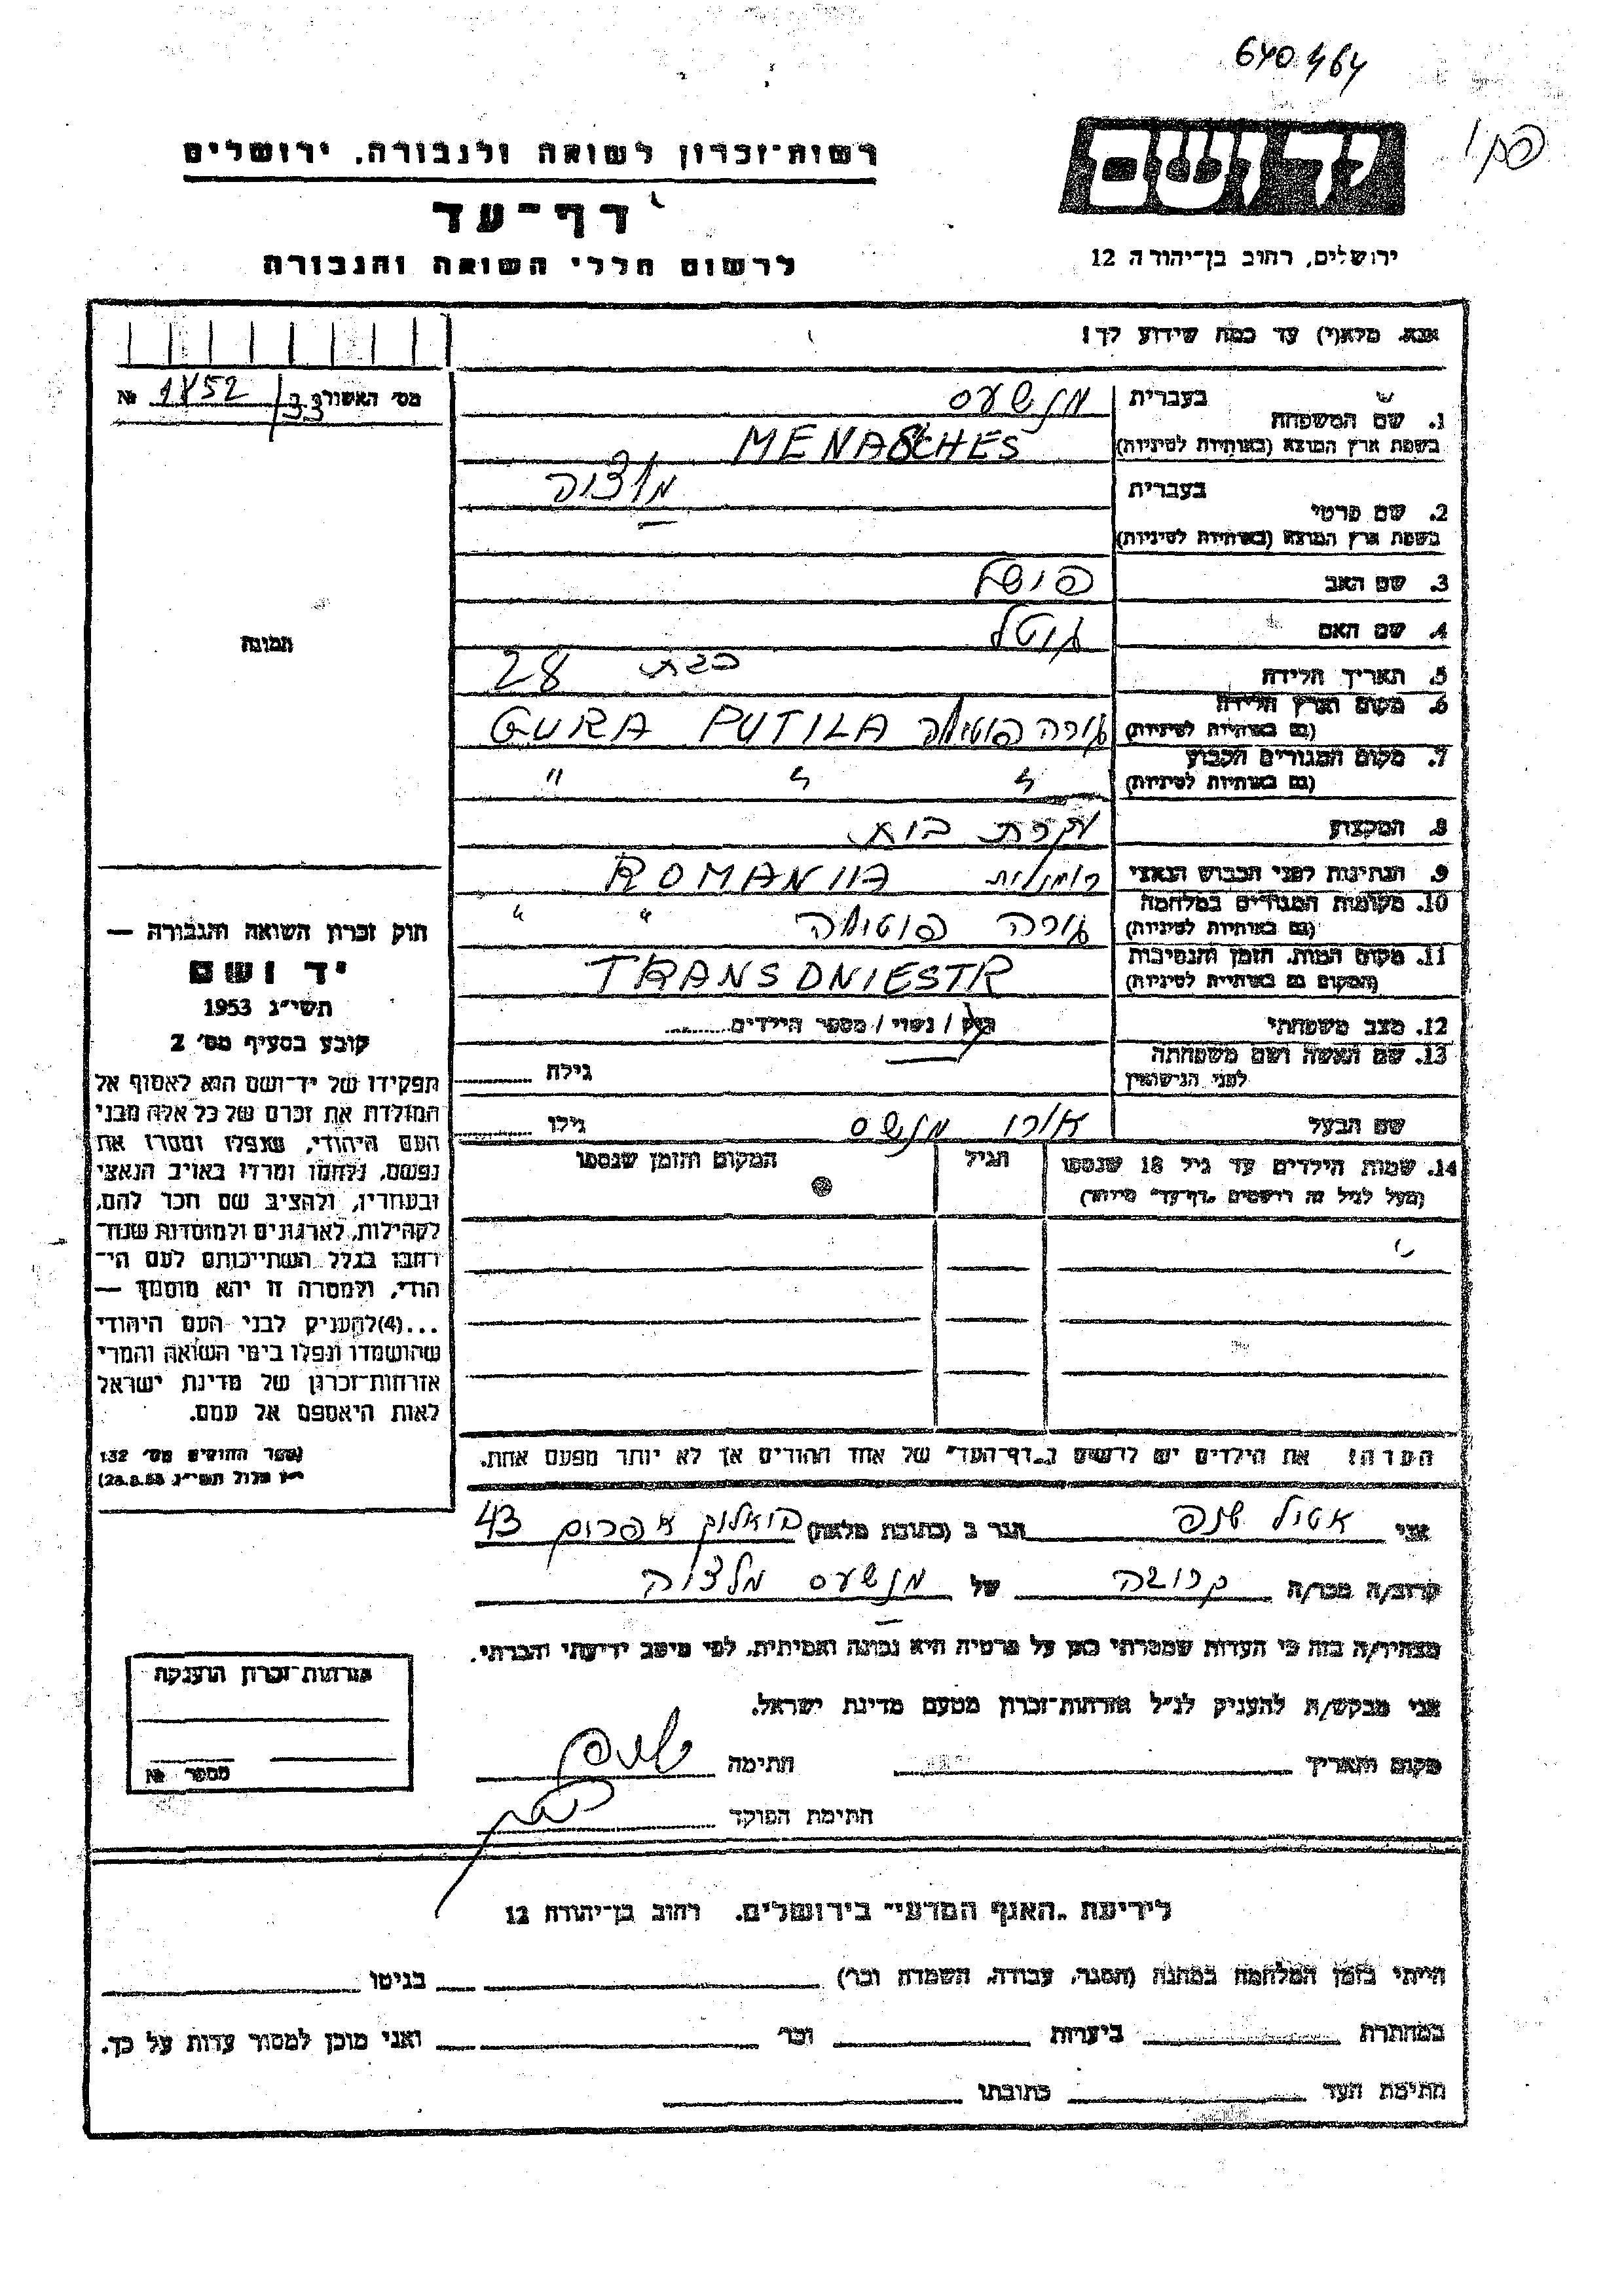 640464
רשות־זכרון לשואה ולגבורה, ירושלים
יד ושם
דף־עד
לרשום חללי השואה והגבורה
ירושלים, רחוב בן־יהודה 12
אנא, מלא(י) עד כמה שידוע לך!
מס׳ האשורר №
1. שם המשפחה בעברית מנשעס
בשפת ארץ המוצא (באותיות לטיניות) MENASCHES
2. שם פרטי בעברית
בשפת ארץ המוצא (באותיות לטיניות)
3. שם האב
4. שם האם
5. תאריך הלידה כבת 28
6. מקום וארץ הלידה (גם באותיות לטיניות) גורה פוטילה GURA PUTILA
7. מקום המגורים הקבוע (גם באותיות לטיניות) " " "
8. המקצוע עקרת בית
9. הנתינות לפני הכבוש הנאצי רומנית ROMANIIA
10. מקומות המגורים במלחמה (גם באותיות לטיניות) גורה פוטילה " "
11. מקום המות, הזמן והנסיבות (המקום גם באותיות לטיניות) TRANSDNIESTR
12. מצב משפחתי רוק / נשוי / מספר הילדים
13. שם האשה ושם משפחתה לפני הנישואין גילה
שם הבעל מנשס גילו
14. שמות הילדים עד גיל 18 שנספו הגיל המקום והזמן שנספו
(מעל לגיל זה רושמים „דף־עד” מיוחד)
הערה: את הילדים יש לרשום ב„דף־העד” של אחד ההורים אך לא יותר מפעם אחת.
תמונה
חוק זכרון השואה והגבורה —
יד ושם
תשי״ג 1953
קובע בסעיף מס׳ 2
תפקידו של יד־ושם הוא לאסוף אל
המולדת את זכרם של כל אלה מבני
העם היהודי, שנפלו ומסרו את
נפשם, נלחמו ומרדו באויב הנאצי
ובעוזריו, ולהציב שם וזכר להם,
לקהילות, לארגונים ולמוסדות שנח־
רבו בגלל השתייכותם לעם הי־
הודי, ולמטרה זו יהא מוסמך —
...(4)להעניק לבני העם היהודי
שהושמדו ונפלו בימי השואה והמרי
אזרחות־זכרון של מדינת ישראל
לאות היאספם אל עמם.
(ספר החוקים מס׳ 132
י״ז אלול תשי״ג 28.8.53)
אני הגר ב (כתובת מלאה) 43
קרוב/ה מכר/ה קרובה של מנשעס
מצהיר/ה בזה כי העדות שמסרתי כאן על פרטיה היא נכונה ואמיתית, לפי מיטב ידיעתי והכרתי.
אני מבקש/ת להעניק לנ״ל אזרחות־זכרון מטעם מדינת ישראל.
מקום ותאריך חתימה
חתימת הפוקד
אזרחות־זכרון הוענקה
מספר №
לידיעת „האגף המדעי” בירושלים, רחוב בן־יהודה 12
הייתי בזמן המלחמה במחנה (הסגר, עבודה, השמדה וכו׳) בגיטו
במחתרת ביערות וכו׳ ואני מוכן למסור עדות על כך.
חתימת העד כתובתו